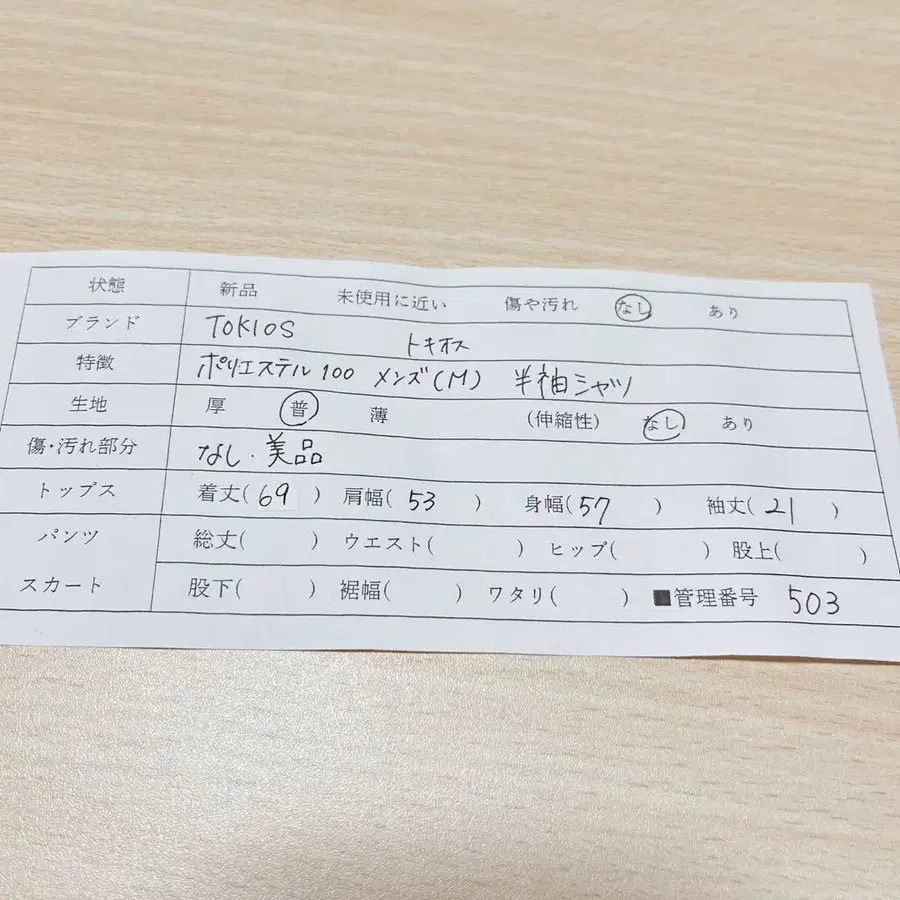 状態 新品 未使用に近い 傷や汚れ なし あり
ブランド TOKIOS トキオス
特徴 ポリエステル100 メンズ(M) 半袖シャツ
生地 厚 普 薄 (伸縮性) なし あり
傷・汚れ部分 なし・美品
トップス 着丈(69) 肩幅(53) 身幅(57) 袖丈(21)
パンツ 総丈( ) ウエスト( ) ヒップ( ) 股上( )
スカート 股下( ) 裾幅( ) ワタリ( ) ■管理番号 503